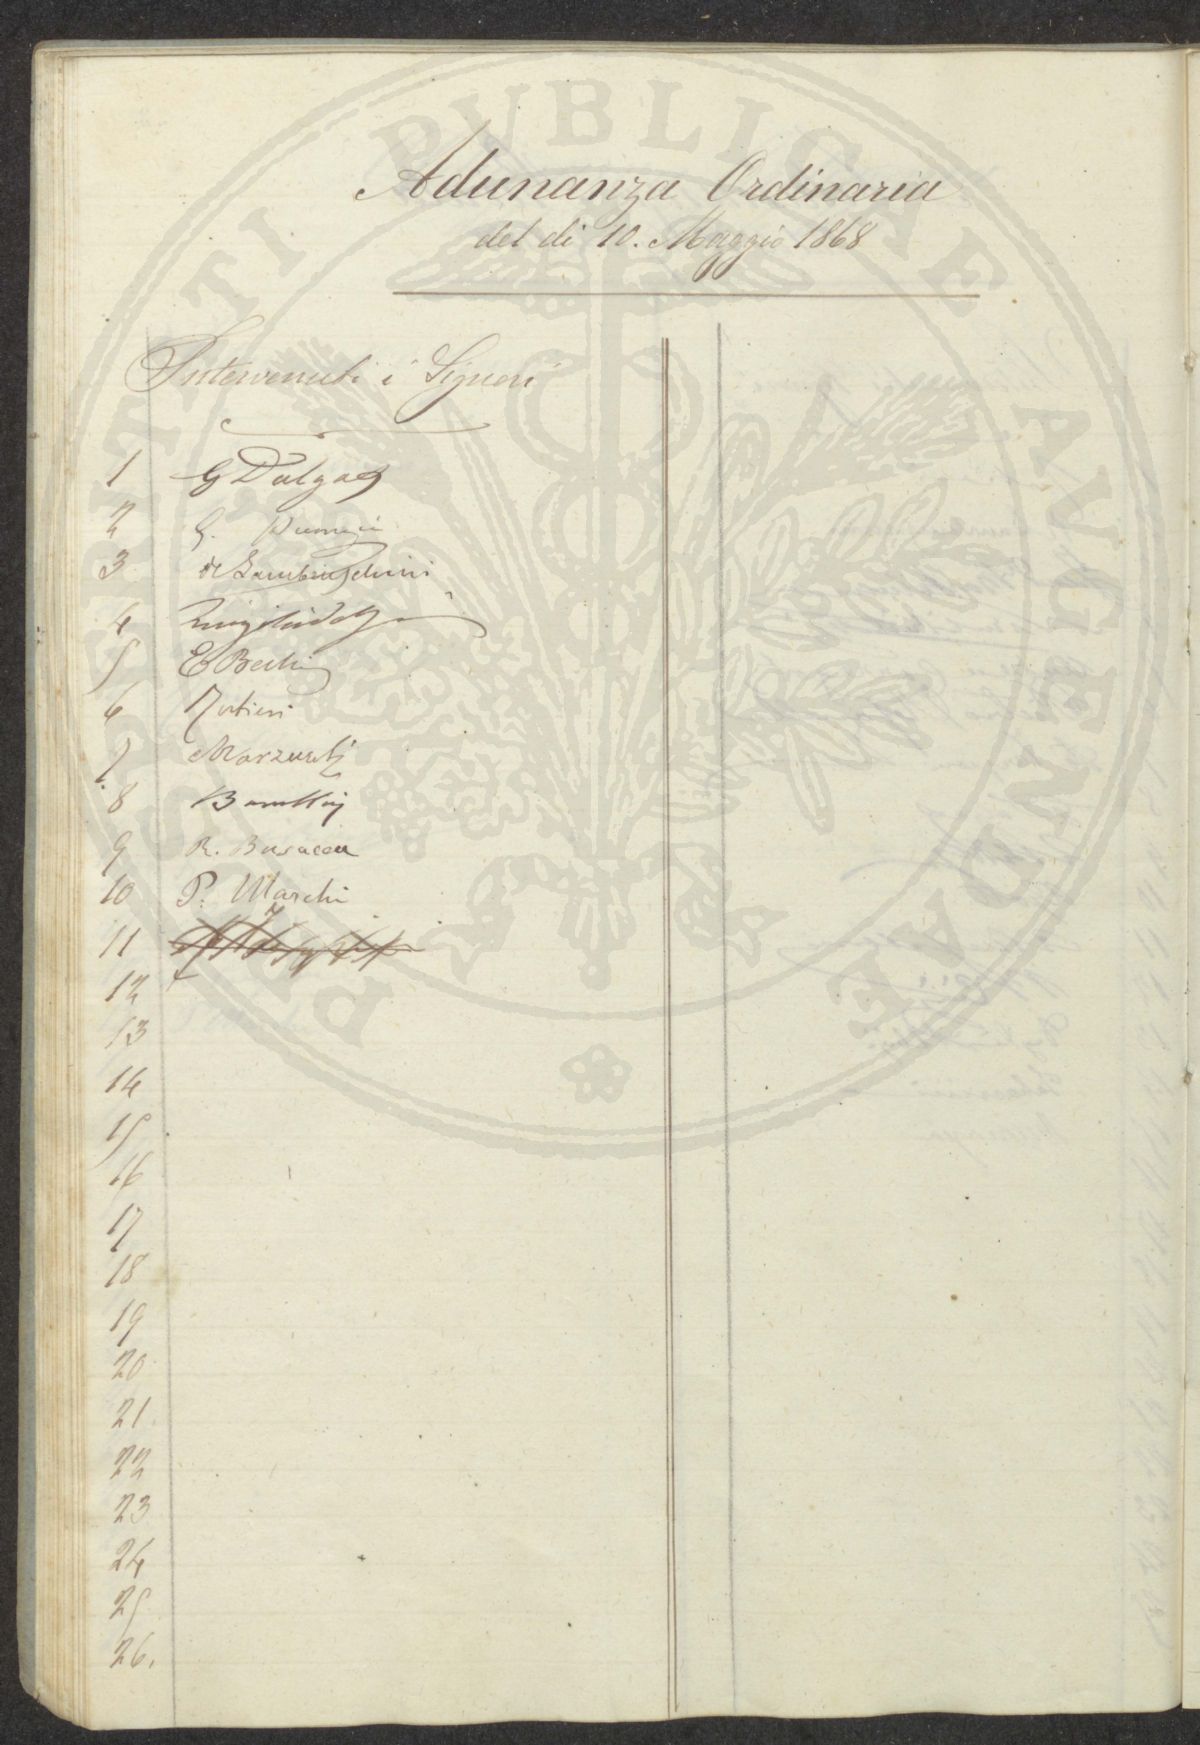 PROSPERITATI PUBLICAE AVGENDAE
Adunanza Ordinaria
del dì 10. Maggio 1868
Intervenuti i Signori
1 G Dalgas
2 G.
3
4 Luigi
5 E Bechi
6
7 Marzucchi
8
9 R. Busacca
10 P. Marchi
11
12
13
14
15
16
17
18
19
20
21
22
23
24
25
26.